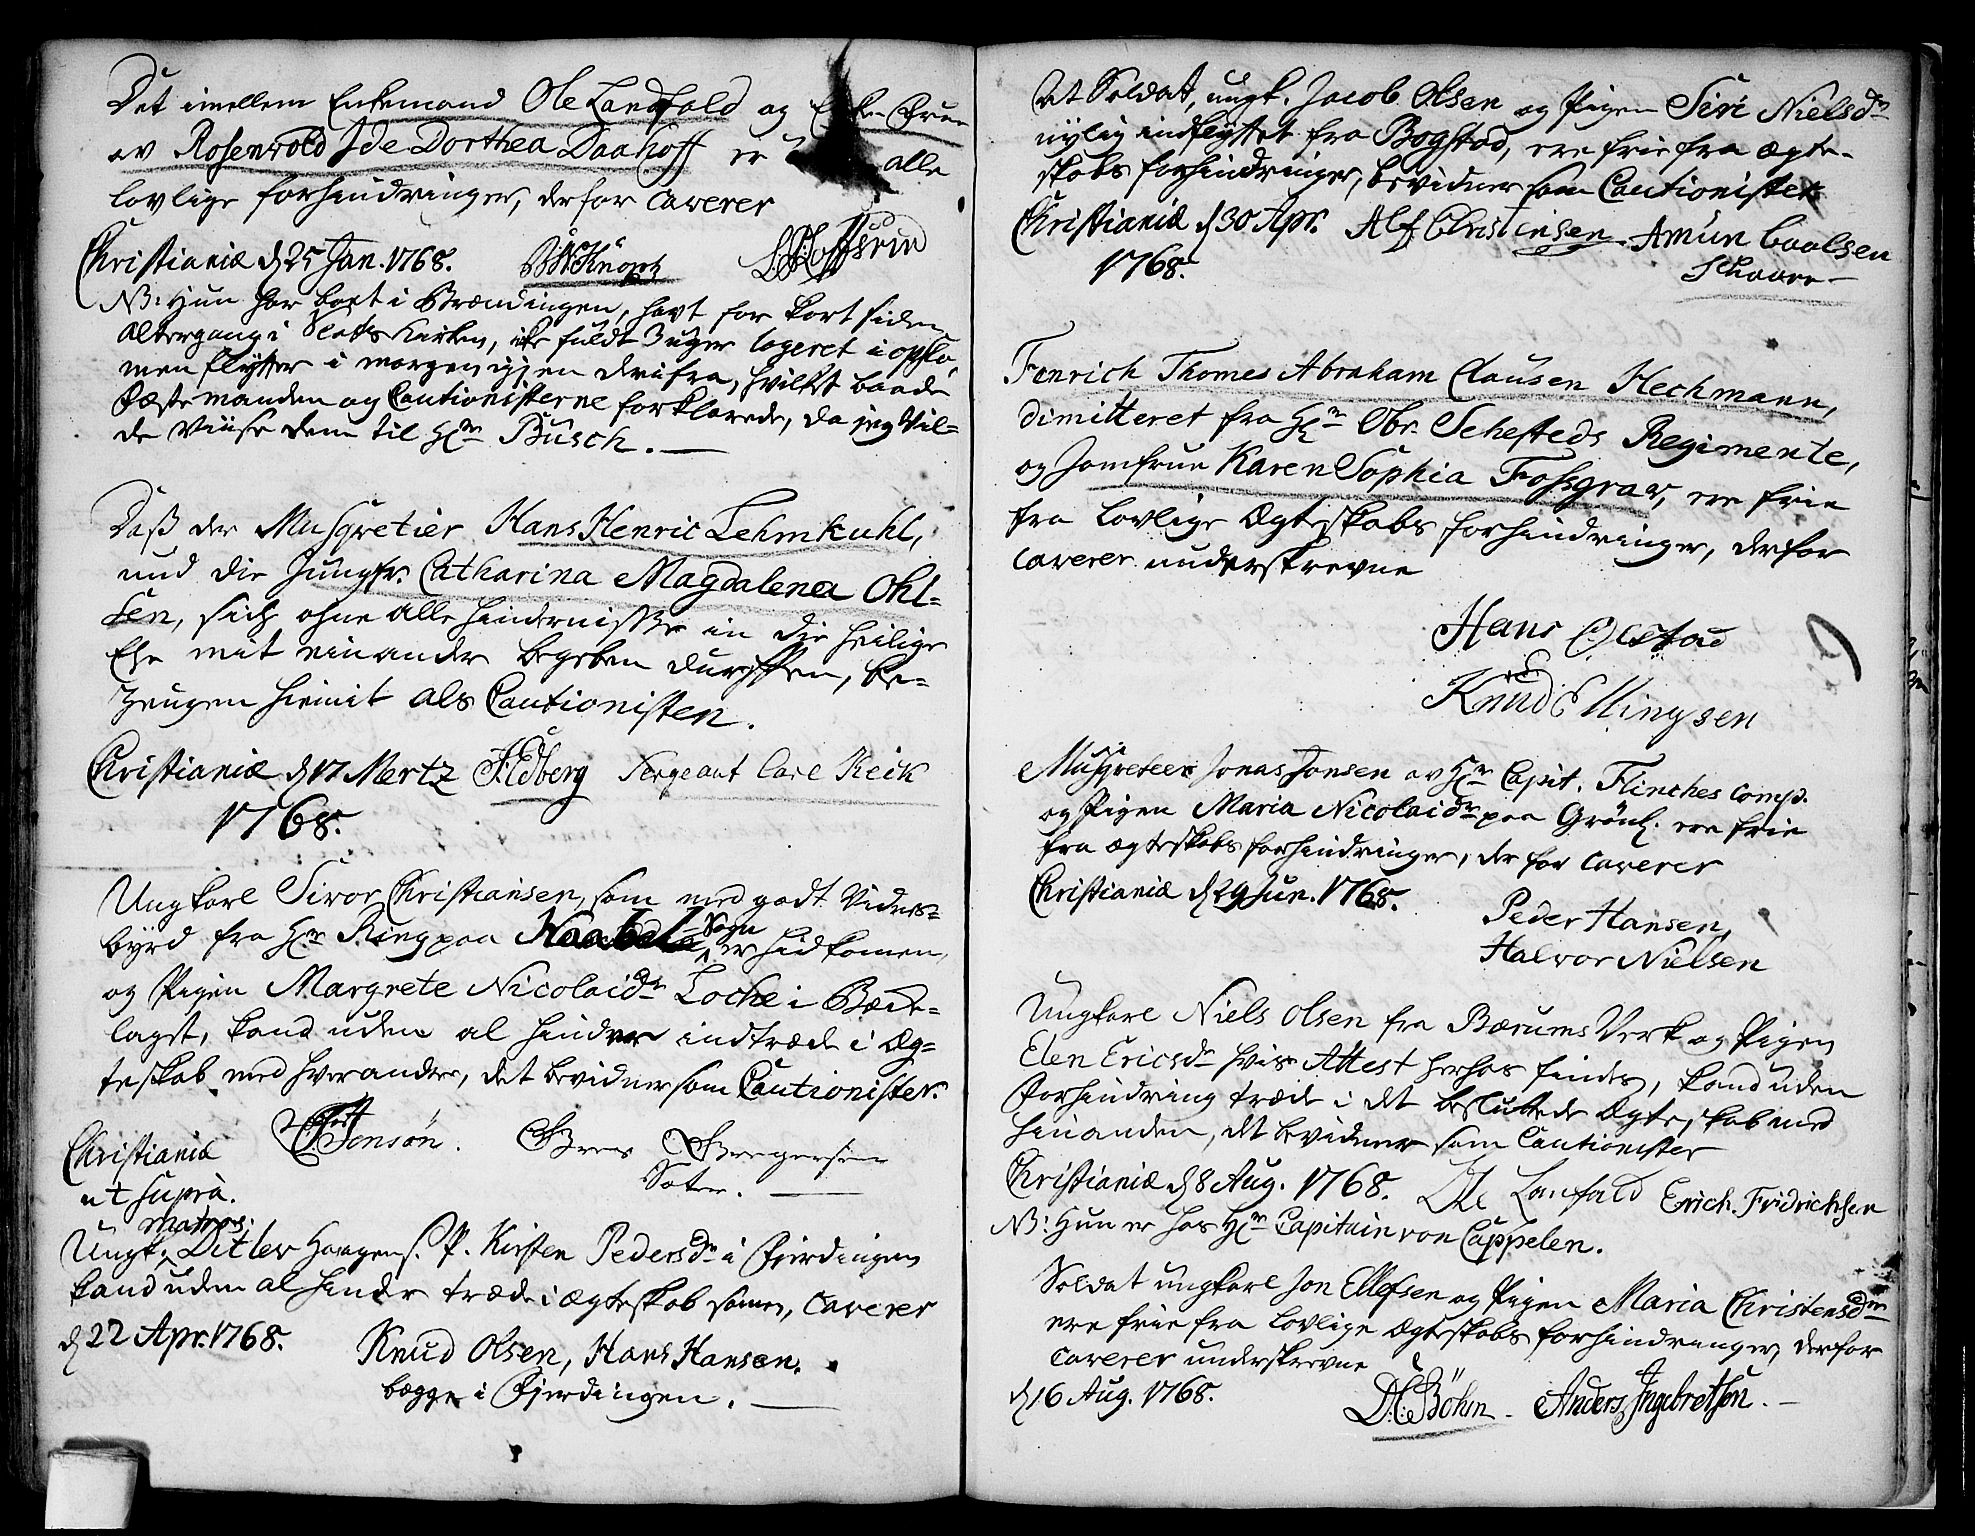 Det imellem Enkemand Ole Landfald og Frue
av Rosenvold Ide Dorthea Daahoff er alle
lovlige forhindringer, derfor caverer
Christianiæ d 25 Jan. 1768.
NB: Hun har boet i Brændingen, havt for kort siden
Altergang i Slots Kirken, ikke fuldt 3 uger logeret i opslo,
men flytter i morgen igjen derifra, hvilket baade
Fæstemanden og Cautionisterne forklarede, da jeg Vil-
de Viise dem til Hr Busch.
Daß der Musqvetier Hans Henric Lehmkuhl,
und die Jungfr. Catharina Magdalena Ohl-
sen, sich ohne alle Hinderniße in die heilige
Ehe mit einander begeben durffen, be-
zeugen hiemit als Cautionisten.
Christianiæ d 17 Mertz Sergeant Carl Keick
1768.
Ungkarl Siver Christiansen, som med godt Vidnes-
byrd fra Hr Ring paa Sogn er hidkomen,
og Pigen Margrete Nicolaidr Locke i Bæde-
lagst, kand uden al hinder indtræde i Æg-
teskab med hverandre, det bevidner som Cautionister.
Jonsøn. Gregersen
Christianiæ
ut supra.
matros:
Ungk. Ditlev Haagens. P. Kirsten Pedersdr i Fierdingen
kand uden al hinder træde i ægteskab samen, caverer
d 22 Apr. 1768.
Knud Olsen, Hans Hansen.
begge i Fierdingen.
At Soldat, ungk. Jacob Olsen og Pigen Siri Nielsdr
nylig indflyttet fra Bogstad, ere frie fra ægte-
skabs forhindringer, bevidner som Cautionister
Christianiæ d 30 Apr. Alf Christensen. Amun Caalsen
1768.
Fenrich Thomes Abraham Clausen Heckmann,
dimitteret fra Hr Obr. Sehesteds Regimente,
og Jomfrue Karen Sophia Fossgrav, ere frie
fra lovlige Ægteskabs forhindringer, derfor
caverer underskrevne
Hans Olstad
Knud Ellingsen
Musqveteer Jonas Jonsen av Hr Capit. Flinthes Comp.
og Pigen Maria Nicolaidr paa Grønl. ere frie
fra ægteskabs forhindringer, der for caverer
Christianiæ d 29 Jun. 1768.
Peder Hansen,
Halvor Nielsen
Ungkarl Niels Olsen fra Bærums Verk og Pigen
Elen Ericsdr hvis Attest herhos findes, kand uden
forhindring træde i det besluttede Ægteskab med
hinanden, det bevidner som Cautionister
Christianiæ d 8 Aug. 1768. Ole Lanfald Erich Fridrichsen
NB: Hun er hos Hr Capitain von Cappelen.
Soldat ungkarl Jon Ellefsen og Pigen Maria Christensdr
ere frie fra lovlige ægteskabs forhindringer, derfor
caverer underskrevne
d 16 Aug. 1768. D.C. Böhm. Anders Ingebretsen.